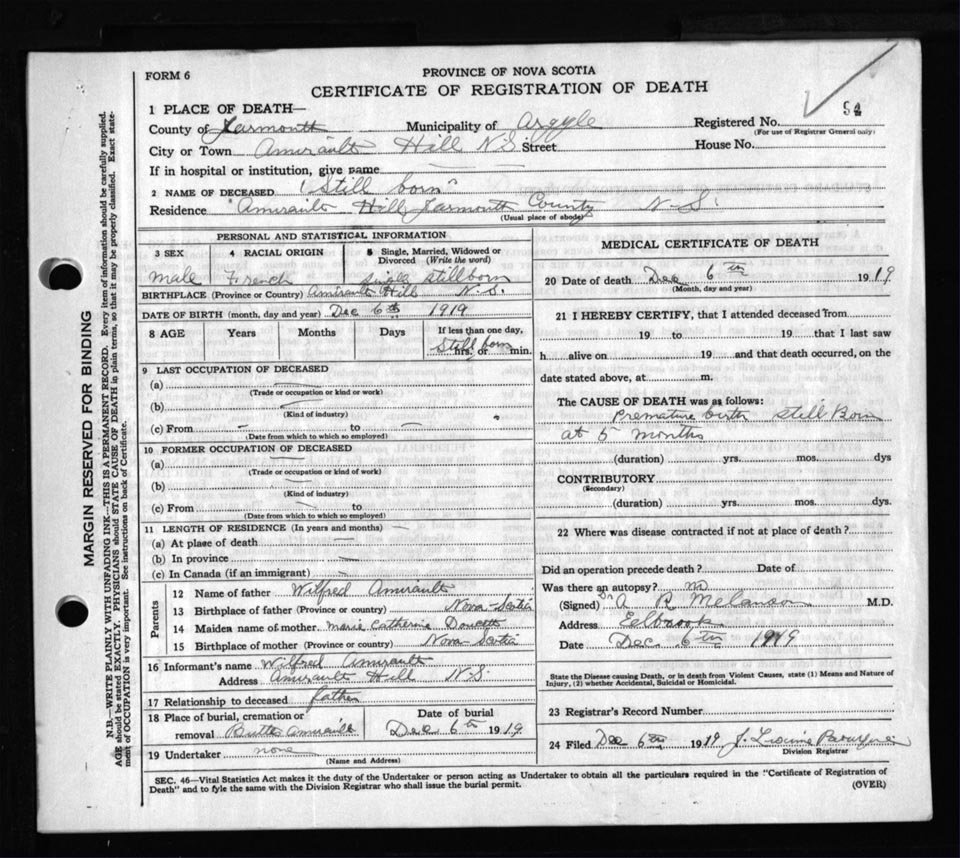 FORM 6
PROVINCE OF NOVA SCOTIA
CERTIFICATE OF REGISTRATION OF DEATH
1 PLACE OF DEATH—
County of Yarmouth Municipality of Argyle Registered No. 54
(For use of Registrar General only)
City or Town Amirault Hill N S Street House No.
If in hospital or institution, give name
2 NAME OF DECEASED "Still born"
Residence Amirault Hill Yarmouth County N-S.
(Usual place of abode)
PERSONAL AND STATISTICAL INFORMATION
3 SEX 4 RACIAL ORIGIN 5 Single, Married, Widowed or Divorced (Write the word)
Male French single stillborn
BIRTHPLACE (Province or Country) Amirault Hill N.S.
DATE OF BIRTH (month, day and year) Dec 6th 1919
8 AGE Years Months Days If less than one day,
Still born hrs. or min.
9 LAST OCCUPATION OF DECEASED
(a)
(Trade or occupation or kind or work)
(b)
(Kind of industry)
(c) From to
(Date from which to which so employed)
10 FORMER OCCUPATION OF DECEASED
(a)
(Trade or occupation or kind of work)
(b)
(Kind of industry)
(c) From to
(Date from which to which so employed)
11 LENGTH OF RESIDENCE (In years and months) —
(a) At place of death —
(b) In province —
(c) In Canada (if an immigrant) —
Parents
12 Name of father Wilfred Amirault
13 Birthplace of father (Province or country) Nova-Scotia
14 Maiden name of mother Marie Catherine Doucette
15 Birthplace of mother (Province or country) Nova Scotia
16 Informant's name Wilfred Amirault
Address Amirault Hill N-S.
17 Relationship to deceased father
18 Place of burial, cremation or removal Butte Amirault
Date of burial Dec 6th 1919
19 Undertaker none
(Name and Address)
MEDICAL CERTIFICATE OF DEATH
20 Date of death Dec 6th 1919.
(Month, day and year)
21 I HEREBY CERTIFY, that I attended deceased from
19 to 19 that I last saw
h alive on 19 and that death occurred, on the
date stated above, at m.
The CAUSE OF DEATH was as follows:
Premature birth Still Born
at 5 months
(duration) yrs. mos. dys
CONTRIBUTORY
(Secondary)
(duration) yrs. mos. dys.
22 Where was disease contracted if not at place of death?
Did an operation precede death? Date of
Was there an autopsy? no
(Signed) Dr A R Melanson M.D.
Address Eelbrook
Date Dec. 6th 1919
State the Disease causing Death, or in death from Violent Causes, state (1) Means and Nature of
Injury, (2) whether Accidental, Suicidal or Homicidal.
23 Registrar's Record Number
24 Filed Dec 6th 1919 J.
Division Registrar
SEC. 46—Vital Statistics Act makes it the duty of the Undertaker or person acting as Undertaker to obtain all the particulars required in the "Certificate of Registration of
Death" and to fyle the same with the Division Registrar who shall issue the burial permit.
(OVER)
MARGIN RESERVED FOR BINDING
N.B.—WRITE PLAINLY WITH UNFADING INK—THIS IS A PERMANENT RECORD. Every item of information should be carefully supplied.
AGE should be stated EXACTLY. PHYSICIANS should STATE CAUSE OF DEATH in plain terms, so that it may be properly classified. Exact state-
ment of OCCUPATION is very important. See instructions on back of Certificate.